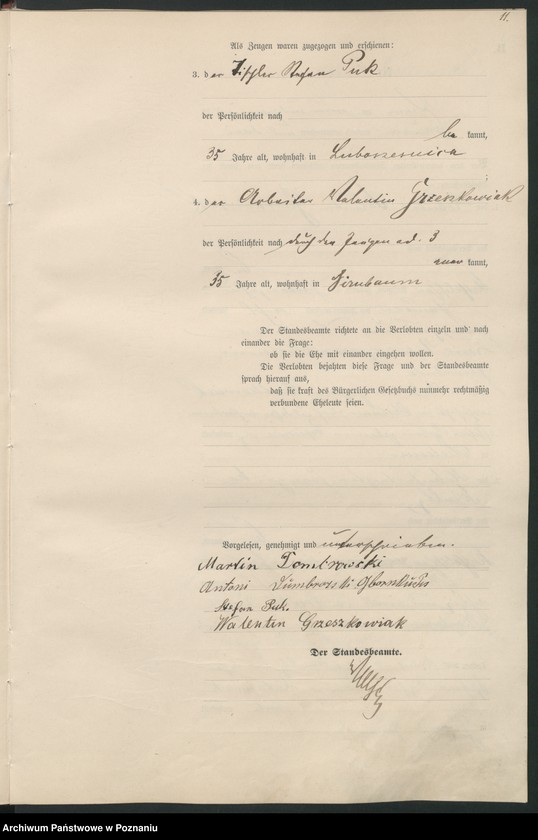 11.
Als Zeugen waren zugezogen und erschienen:
3. der Tischler Stefan Puk
der Persönlichkeit nach
be kannt,
35 Jahre alt, wohnhaft in Lubosznica
4. der Arbeiter Valentin Grzeszkowiak
der Persönlichkeit nach durch den Zeugen ad. 3
aner kannt,
35 Jahre alt, wohnhaft in Birnbaum
Der Standesbeamte richtete an die Verlobten einzeln und nach
einander die Frage:
ob sie die Ehe mit einander eingehen wollen.
Die Verlobten bejahten diese Frage und der Standesbeamte
sprach hierauf aus,
daß sie kraft des Bürgerlichen Gesetzbuchs nunmehr rechtmäßig
verbundene Eheleute seien.
Vorgelesen, genehmigt und unterschrieben.
Martin Dombrowski
Antoni
Stefan Puk.
Walentin Grzeszkowiak
Der Standesbeamte.
Archiwum Państwowe w Poznaniu